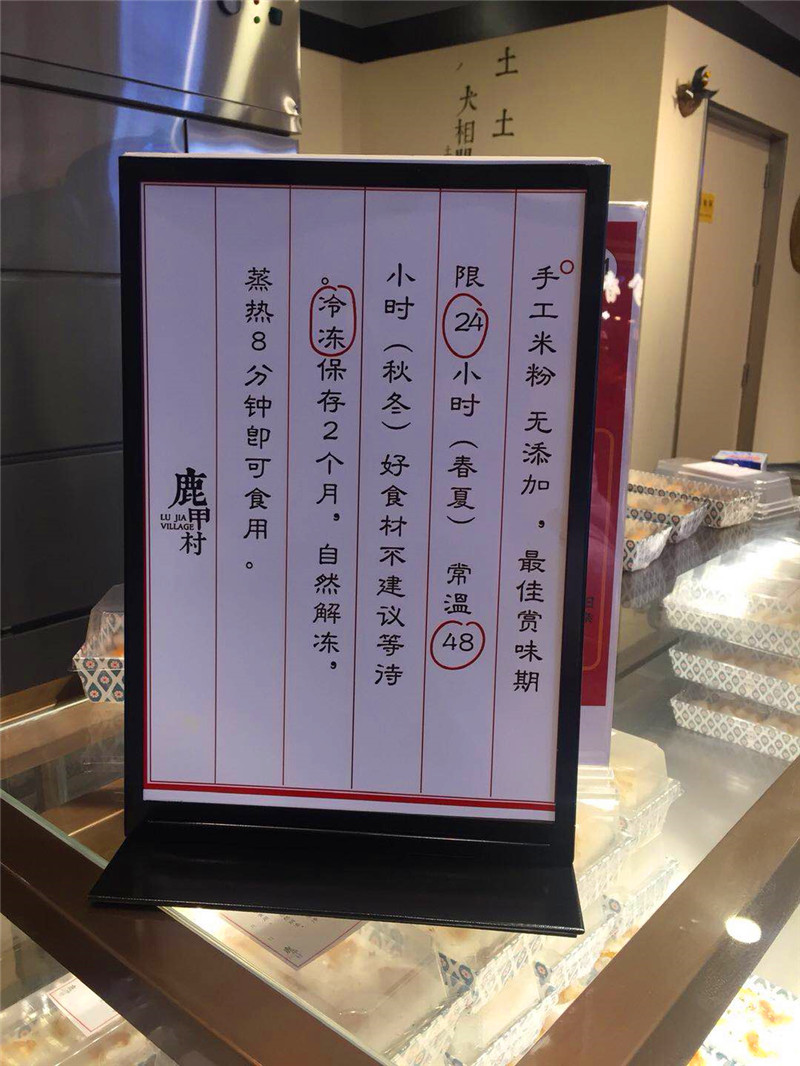 手工米粉 无添加，最佳赏味期
限24小时（春夏） 常温48
小时（秋冬）好食材不建议等待
。冷冻保存2个月，自然解冻，
蒸热8分钟即可食用。
鹿甲村
LU JIA
VILLAGE
土
土
犬相